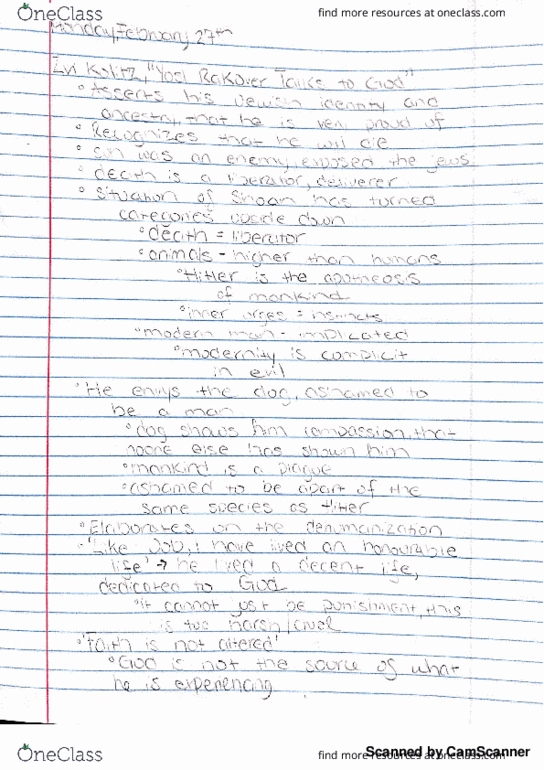 OneClass
find more resources at oneclass.com
Monday, February 27th
Zvi Kolitz, "Yosl Rakover Talks to God"
° Asserts his Jewish identity and
ancestry, that he is very proud of
° Recognizes that he will die
° sun was an enemy, exposed the jews
° death is a liberator, deliverer
° situation of Shoah has turned
categories upside down
° death = liberator
° animals - higher than humans
° Hitler is the apotheosis
of mankind
° inner urges = instincts
° modern man - implicated
° modernity is complicit
in evil
° He envys the dog, ashamed to
be a man
° dog shows him compassion, that
noone else has shown him
° mankind is a plague
° ashamed to be apart of the
same species as Hitler
° Elaborates on the dehumanization
° "Like Job, i have lived an honourable
life" → he lived a decent life,
dedicated to God
° it cannot just be punishment, this
is too harsh/cruel
° "Faith is not altered"
° God is not the source of what
he is experiencing
OneClass
find more resources at oneclass.com
Scanned by CamScanner